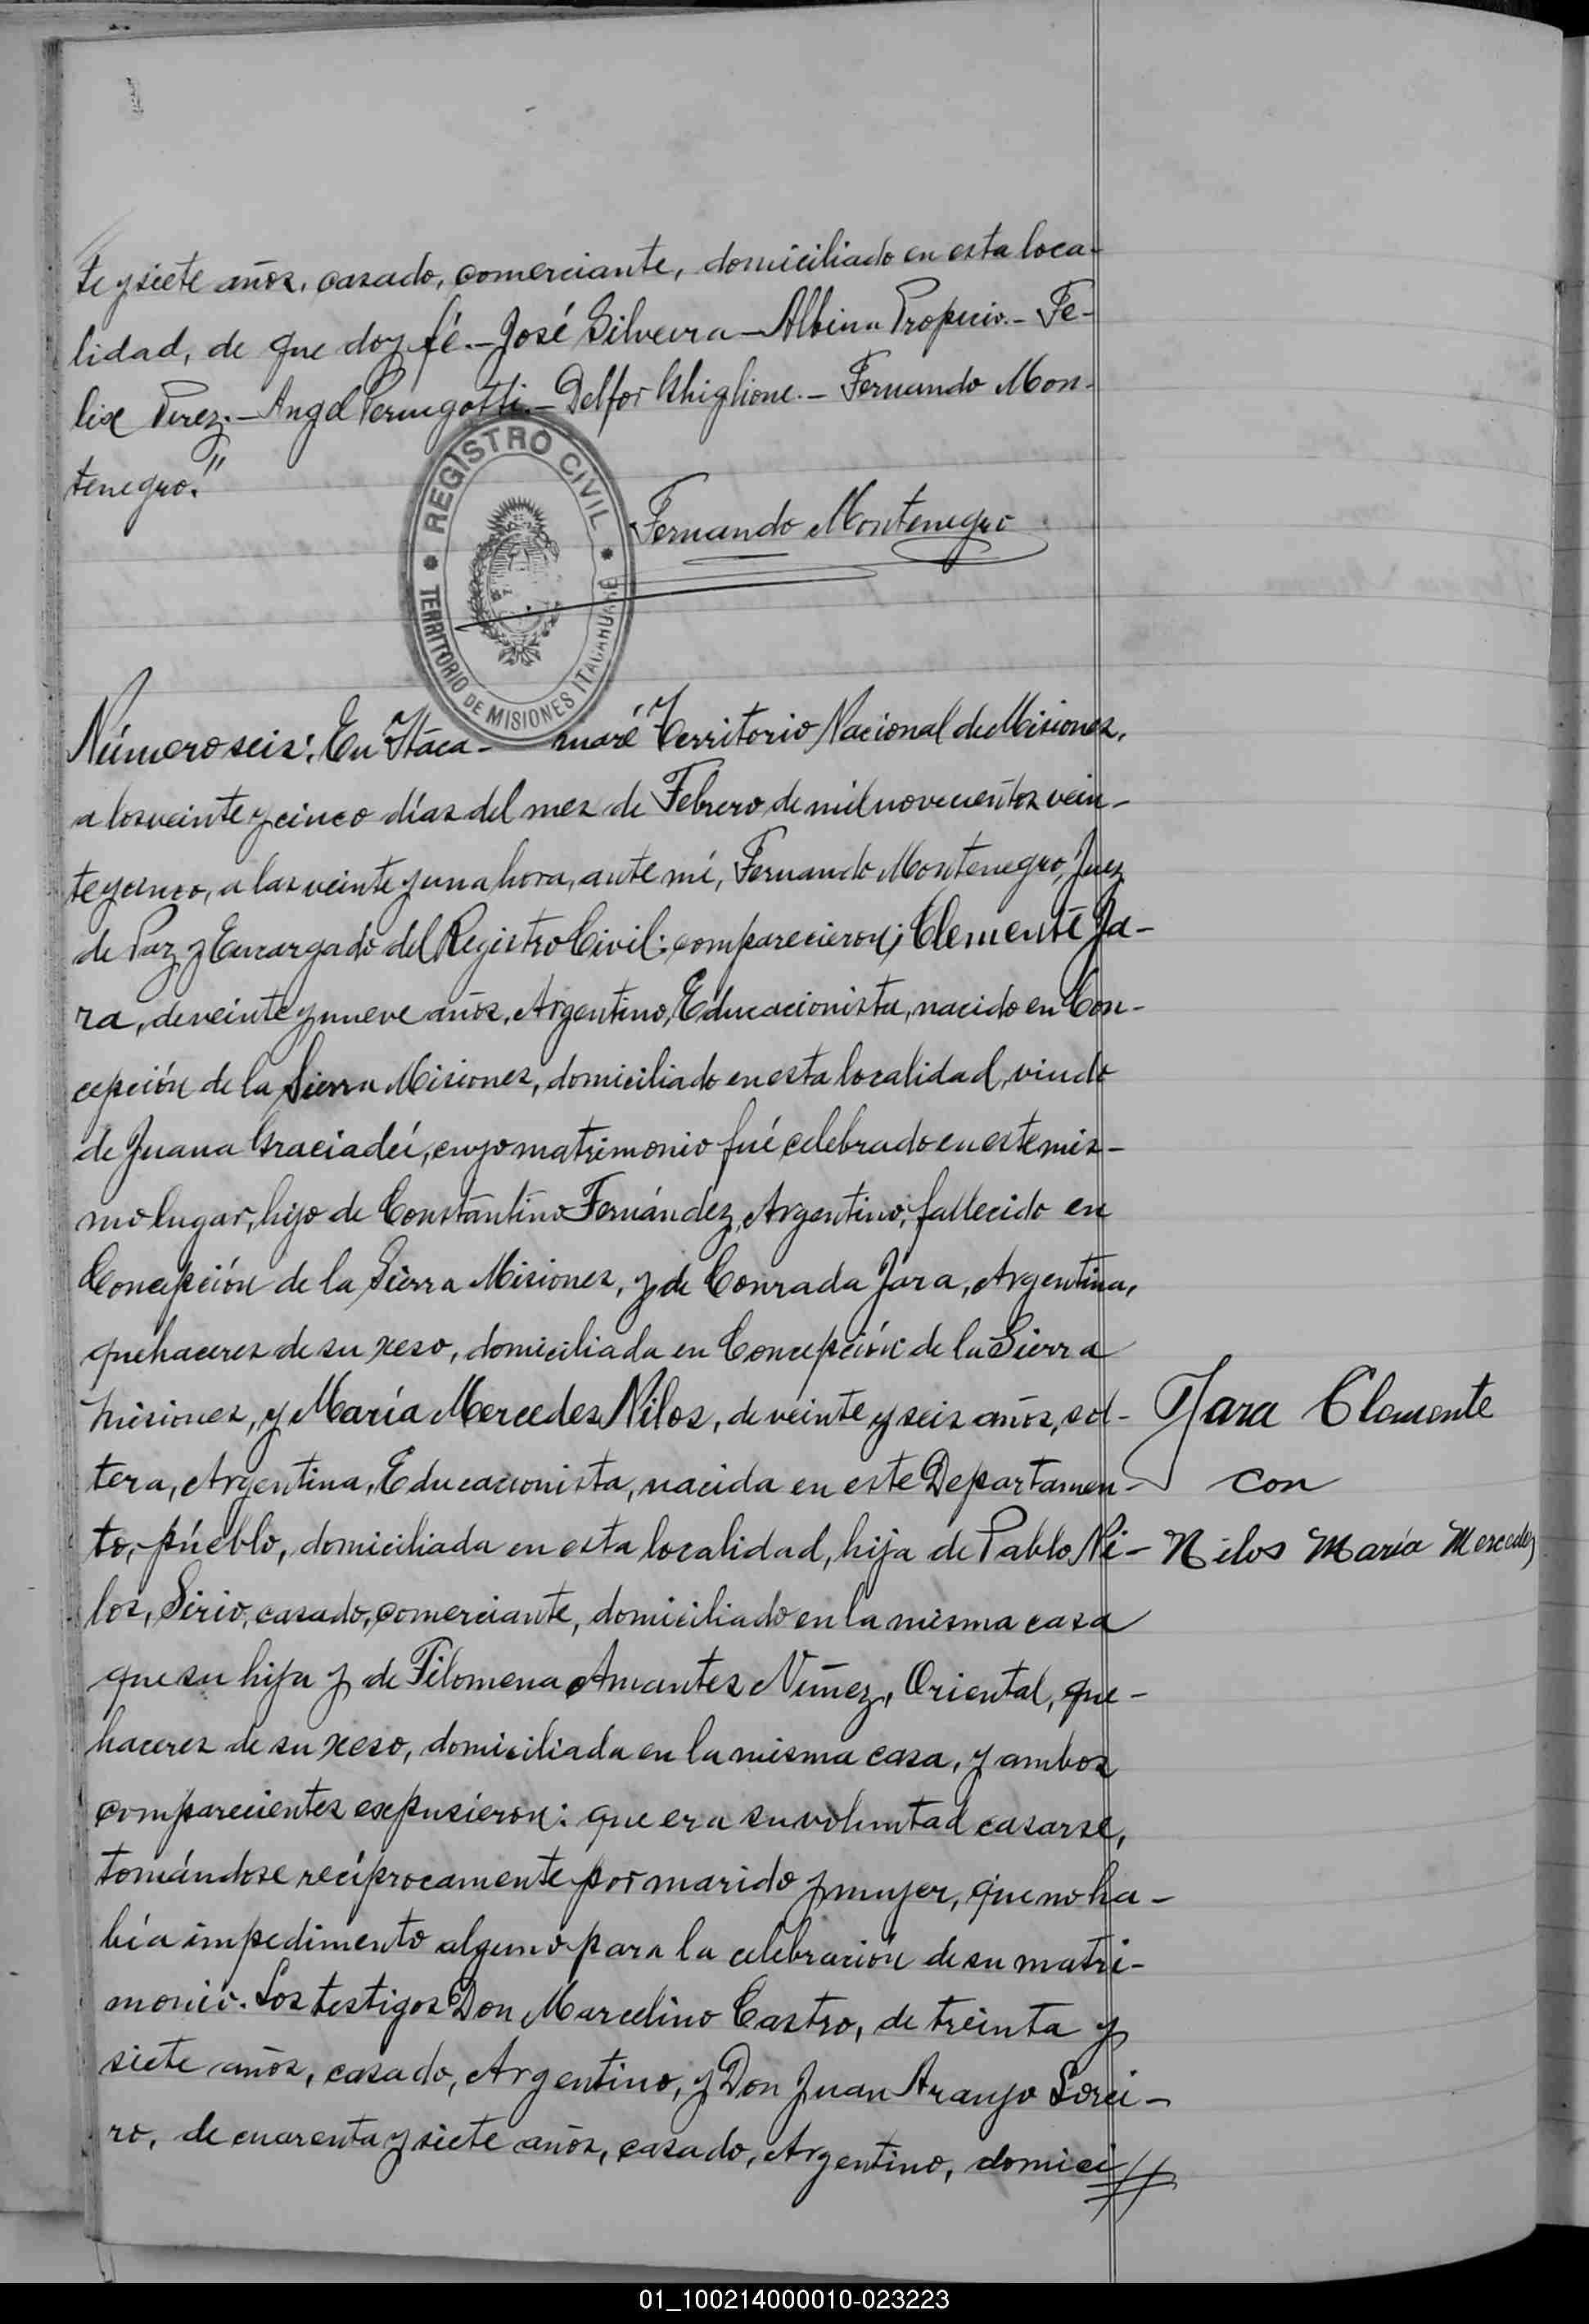 te y siete años, casado, comerciante, domiciliado en esta loca-
lidad, de que doy fé.- José Silveira - Albina Propicio.- Fe-
lix Perez.- Angel Perugotti.- Delfor Ghiglione.- Fernando Mon-
tenegro."
REGISTRO CIVIL
TERRITORIO DE MISIONES ITACARUARÉ
Fernando Montenegro
Número seis: En Itaca- ruaré Territorio Nacional de Misiones,
a los veinte y cinco días del mes de Febrero de mil novecientos vein-
te y cinco, a las veinte y una hora, ante mí, Fernando Montenegro, Juez
de Paz y Encargado del Registro Civil: comparecieron; Clemente Ja-
ra, de veinte y nueve años, Argentino, Educacionista, nacido en Con-
cepción de la Sierra Misiones, domiciliado en esta localidad, viudo
de Juana Graciadéi, cuyo matrimonio fué celebrado en este mis-
mo lugar, hijo de Constantino Fernández, Argentino, fallecido en
Concepción de la Sierra Misiones, y de Conrada Jara, Argentina,
quehaceres de su xeso, domiciliada en Concepción de la Sierra
Misiones, y María Mercedes Nilos, de veinte y seis años, sol-
tera, Argentina, Educacionista, nacida en este Departamen-
to, pueblo, domiciliada en esta localidad, hija de Pablo Ni-
los, Sirio, casado, comerciante, domiciliado en la misma casa
que su hija y de Filomena Amantes Núñez, Oriental, que-
haceres de su xeso, domiciliada en la misma casa, y ambos
comparecientes expusieron: que era su voluntad casarse,
tomándose recíprocamente por marido y mujer, que no ha-
bía impedimento alguno para la celebración de su matri-
monio. Los testigos Don Marcelino Castro, de treinta y
siete años, casado, Argentino, y Don Juan Araujo Lorei-
ro, de cuarenta y siete años, casado, Argentino, domici//
Jara Clemente
con
Nilos María Mercedes
01_100214000010-023223